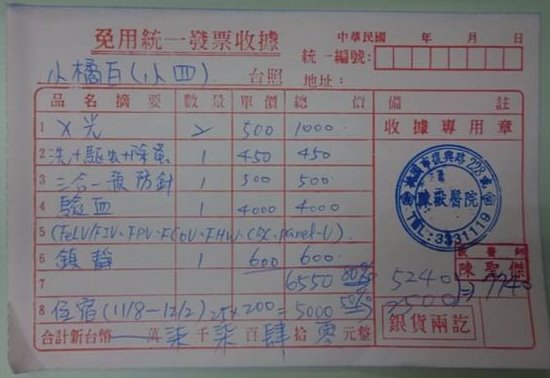 免用統一發票收據
中華民國 年 月 日
小橘白(小四) 台照
統一編號:
地址:
品名摘要 數量 單價 總價 備註
1 X光 2 500 1000
收據專用章
2 洗+驅虫+除蚤 1 450 450
3 三合一預防針 1 500 500
4 驗血 1 4000 4000
5 (FeLV/FIV、FPV、FCoV、FHW、CBC、panel-V)
6 鎮靜 1 600 600
7 6550 80%
8 住宿(11/8~12/2) 25×200= 5000 50%
合計新台幣 萬 柒 千 柒 百 肆 拾 零 元整
桃園市復興路228號
陳獸醫院
TEL:3331119
獸醫師
陳聖傑
5240
2500
7740
銀貨兩訖